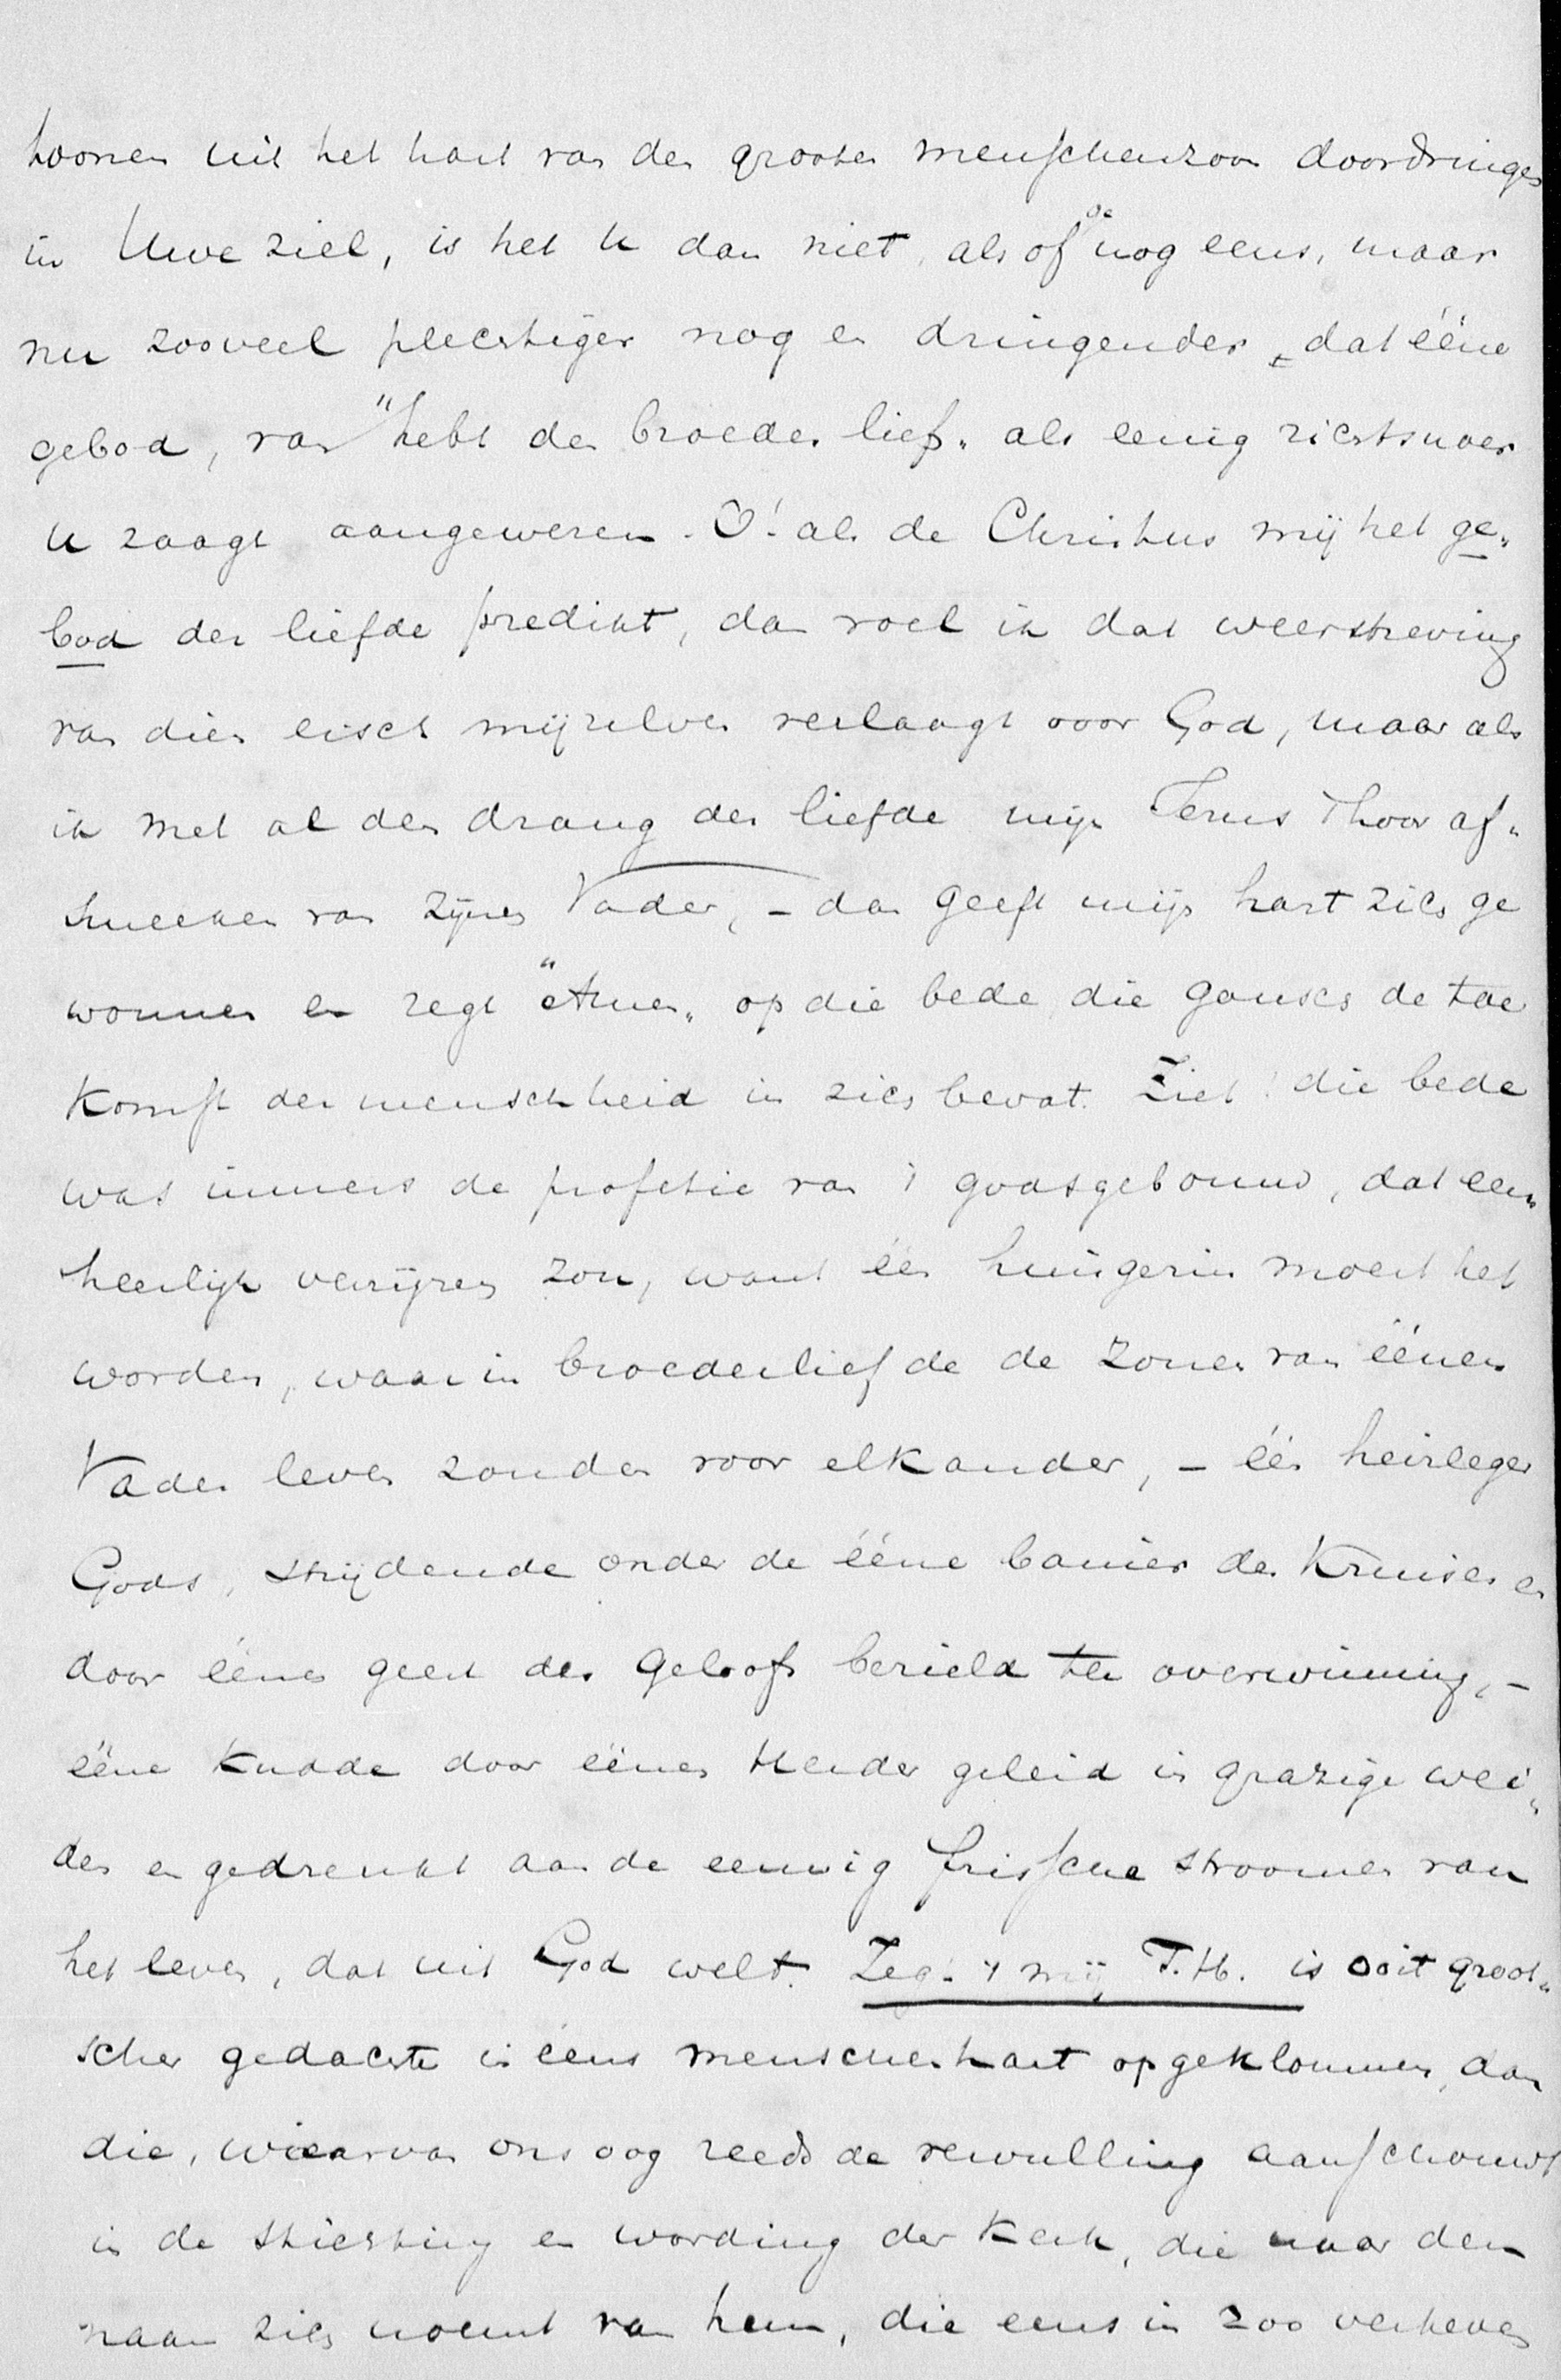 toonen uit het hart van den grooten menschenzoon doordringen
in Uwe ziel, is het U dan niet, als of ge nog eens, maar
nu zooveel plechtiger nog en dringender, dat ééne
gebod, van "hebt den broeder lief" als eenig richtsnoer
U zaagt aangewezen. O! als de Christus mij het ge„
bod der liefde predikt, dan voel ik dat weerstreving
van dien eisch mijzelven verlaagt voor God, maar als
ik met al den drang der liefde mijn Jezus 't hoor af„
smeeken van zijnen Vader, – dan geeft mijn hart zich ge
wonnen en zegt "Amen" op die bede, die gansch de toe
komst der menschheid in zich bevat. Ziet! die bede
was immers de profetie van 't godsgebouw, dat een„
heerlijk verrijzen zou, want één huisgezin moest het
worden, waar in broederliefde de zonen van éénen
Vader leven zouden voor elkander, – één heirleger
Gods, strijdende onder de ééne banier des Kruises en
door éénen geest des geloofs bezield ter overwinning, –
ééne kudde door éénen Herder geleid in grazige wei„
den en gedrenkt aan de eeuwig frissche stroomen van
het leven, dat uit God welt. Zeg 't mij T.H. is ooit groot„
scher gedachte in eens menschenhart opgeklommen, dan
die, waarvan ons oog reeds de vervulling aanschouwt
in de stichting en wording der Kerk, die naar den
naam zich noemt van hem, die eens in zoo verheven